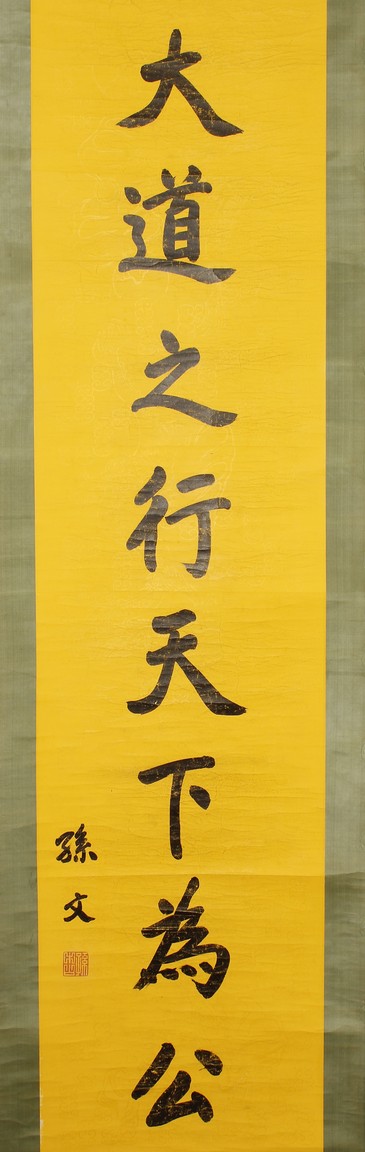 大道之行天下為公
孫文